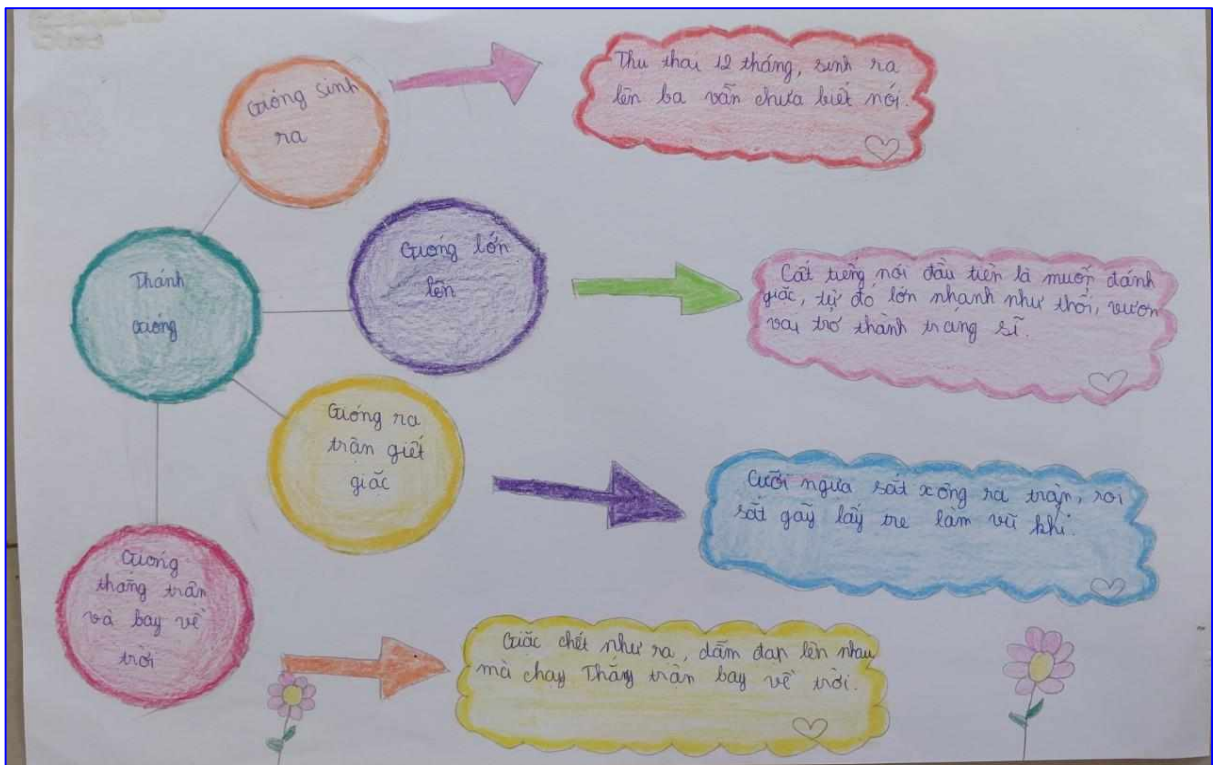 Gióng sinh
ra
Thụ thai 12 tháng, sinh ra
lên ba vẫn chưa biết nói.
Thánh
Gióng
Gióng lớn
lên
Cất tiếng nói đầu tiên là muốn đánh
giặc, từ đó lớn nhanh như thổi, vươn
vai trở thành tráng sĩ.
Gióng ra
trận giết
giặc
Cưỡi ngựa sắt xông ra trận, roi
sắt gãy lấy tre làm vũ khí.
Gióng
thắng trận
và bay về
trời
Giặc chết như rạ, dẫm đạp lên nhau
mà chạy Thắng trận bay về trời.